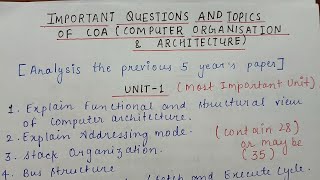 IMPORTANT QUESTIONS AND TOPICS
OF COA (COMPUTER ORGANISATION
& ARCHITECTURE)
[Analysis the previous 5 year's paper]
UNIT-1 (Most Important Unit)
1. Explain functional and structural view
of Computer architecture.
2. Explain Addressing mode. (contain 28)
3. Stack Organization. or may be
(35)
4. Bus Structure
and Execute Cycle.